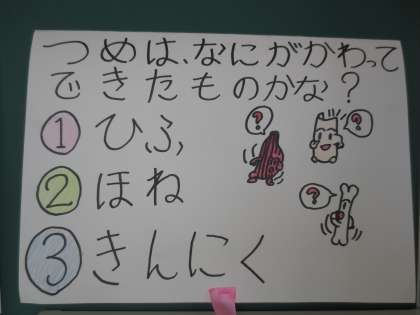 つめは、なにがかわって
できたものかな？
1 ひふ
2 ほね
3 きんにく
?
?
?